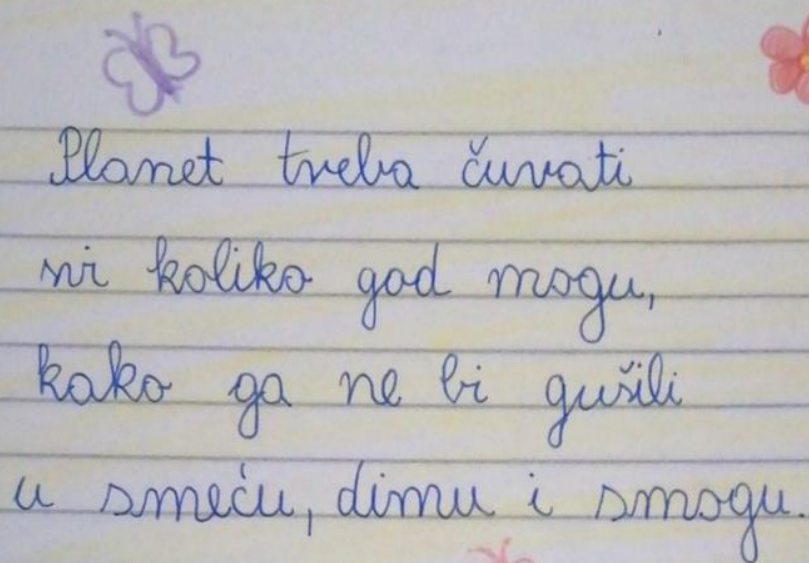 Planet treba čuvati
svi koliko god mogu,
kako ga ne bi gušili
u smeću, dimu i smogu.